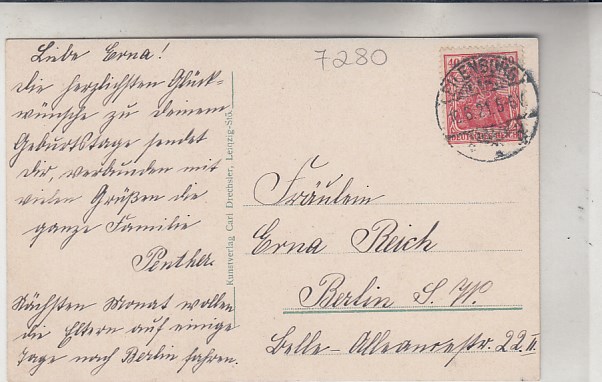 Liebe Erna!
die herzlichsten Glück-
wünsche zu deinem
Geburtstage sendet
Dir, verbunden mit
vielen Grüßen die
ganze Familie
Penther.
Nächsten Monat wollen
die Eltern auf einige
Tage nach Berlin fahren.
Kunstverlag Carl Drechsler, Leipzig-Stö.
7280
40
EILENBURG
DEUTSCHES REICH
Fräulein
Erna Reich
Berlin S. W.
Belle-Alleancestr. 22 II.